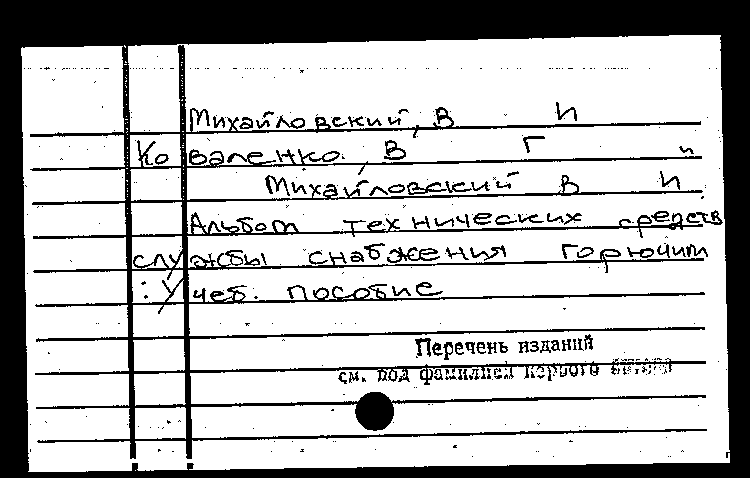 Михайловский, В И
Коваленко, В Г и
Михайловский В И.
Альбом технических средств
службы снабжения горючим
: Учеб. пособие
Перечень изданий
см. под фамилией первого автора